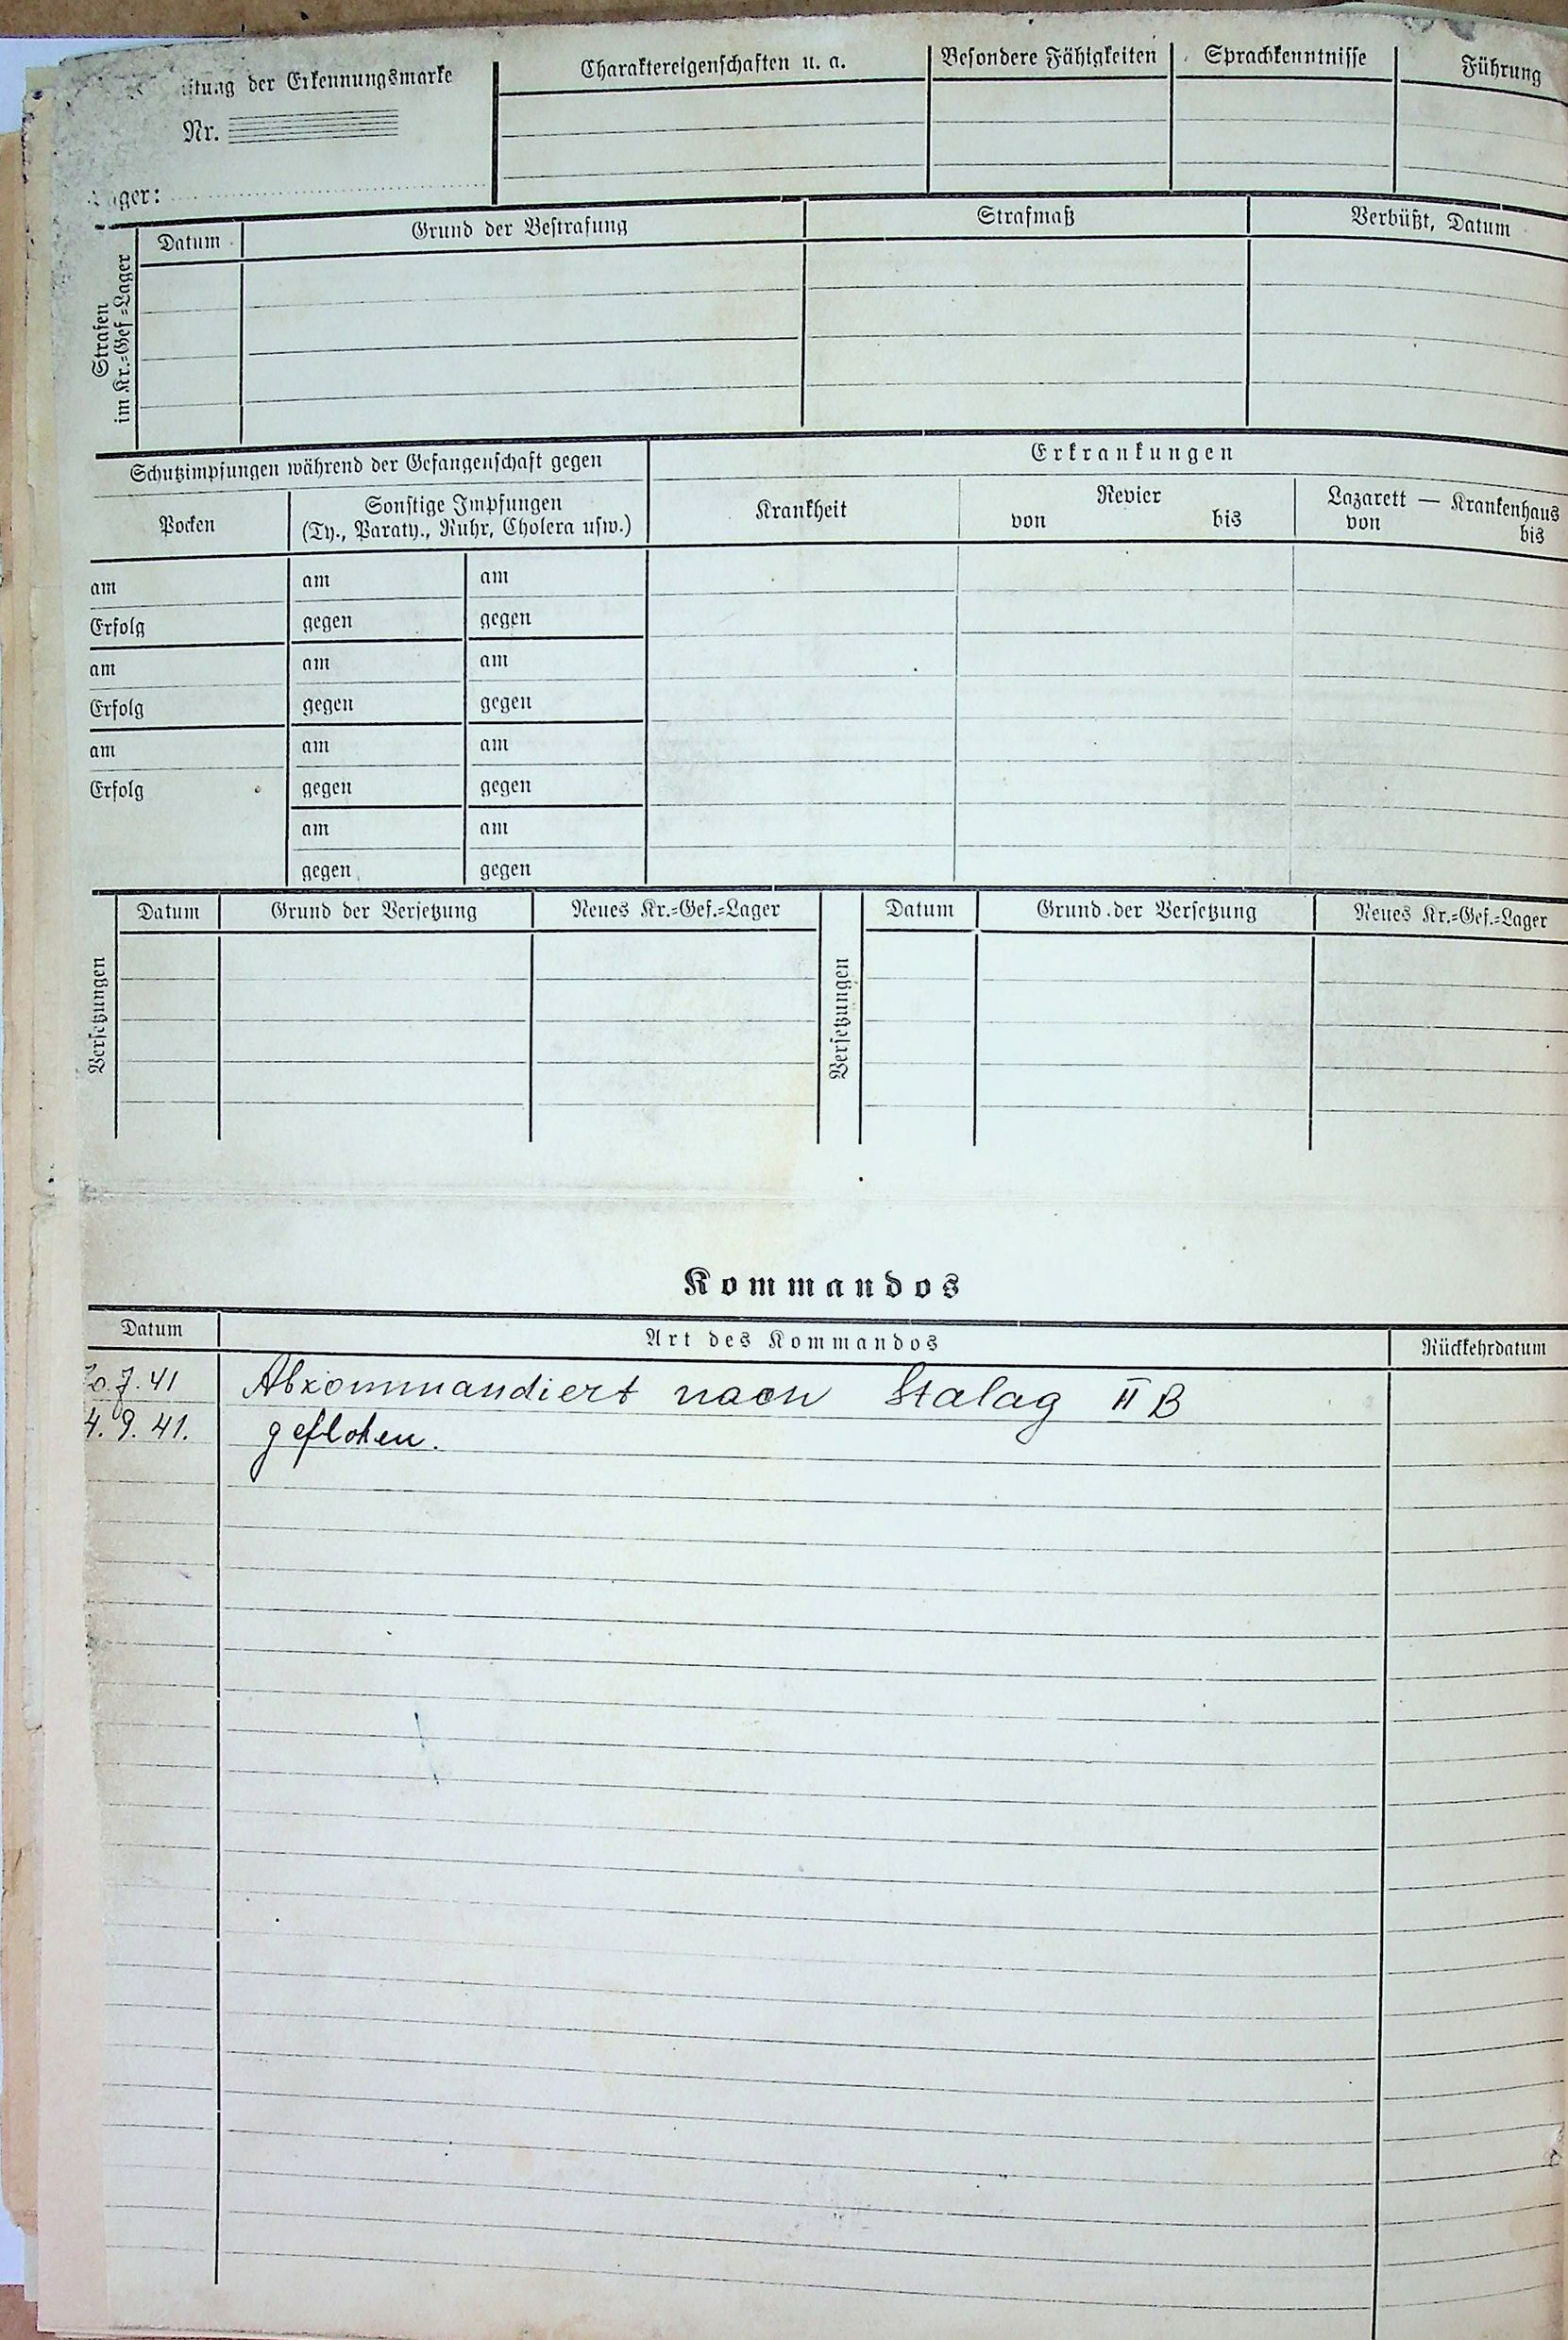 der Erkennungsmarke
Nr.
Charaktereigenschaften u. a.
Besondere Fähigkeiten
Sprachkenntnisse
Führung
Strafen
im Kr.=Gef.=Lager
Datum
Grund der Bestrafung
Strafmaß
Verbüßt, Datum
Schutzimpfungen während der Gefangenschaft gegen
Erkrankungen
Pocken
Sonstige Impfungen
(Ty., Paraty., Ruhr, Cholera usw.)
Krankheit
Revier
von bis
Lazarett — Krankenhaus
von bis
am am am
Erfolg gegen gegen
am am am
Erfolg gegen gegen
am am am
Erfolg gegen gegen
am am
gegen gegen
Versetzungen
Datum Grund der Versetzung Neues Kr.=Gef.=Lager
Versetzungen
Datum Grund der Versetzung Neues Kr.=Gef.=Lager
Kommandos
Datum Art des Kommandos Rückkehrdatum
7.41 Abkommandiert nach Stalag II B
4.9.41. geflohen.